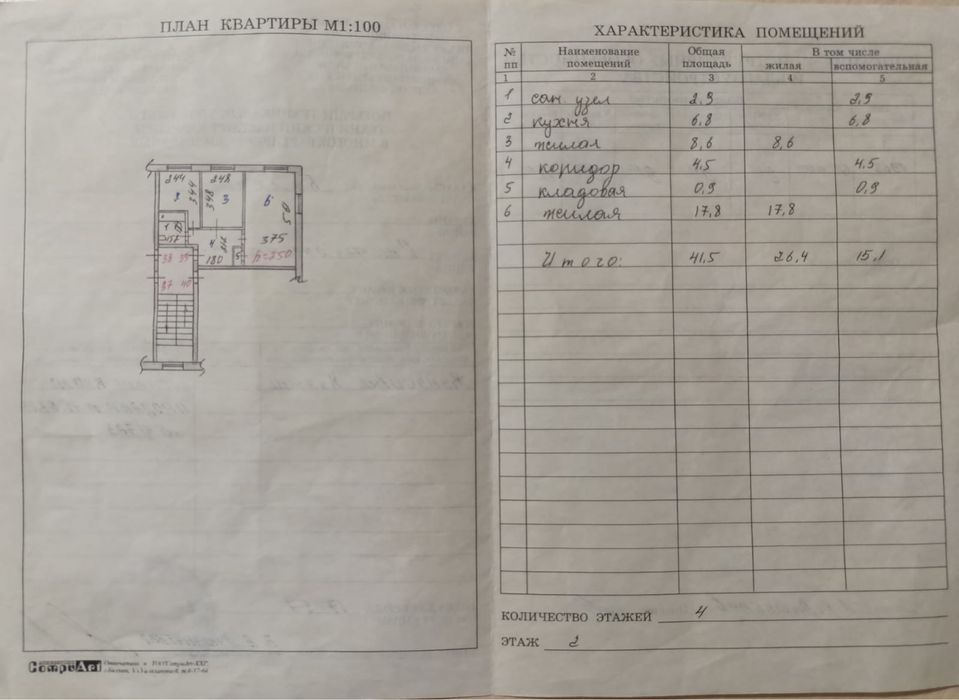 ПЛАН КВАРТИРЫ М1:100
244
248
443
348
3
6
375
h=250
1
4
180
5
38 39
37 40
CompuArt
ХАРАКТЕРИСТИКА ПОМЕЩЕНИЙ
№ пп Наименование помещений Общая площадь В том числе
жилая вспомогательная
1 2 3 4 5
1 сан. узел 2,9 2,9
2 кухня 6,8 6,8
3 жилая 8,6 8,6
4 коридор 4.5 4.5
5 кладовая 0,9 0,9
6 жилая 17,8 17,8
Итого: 41,5 26,4 15,1
КОЛИЧЕСТВО ЭТАЖЕЙ 4
ЭТАЖ 2